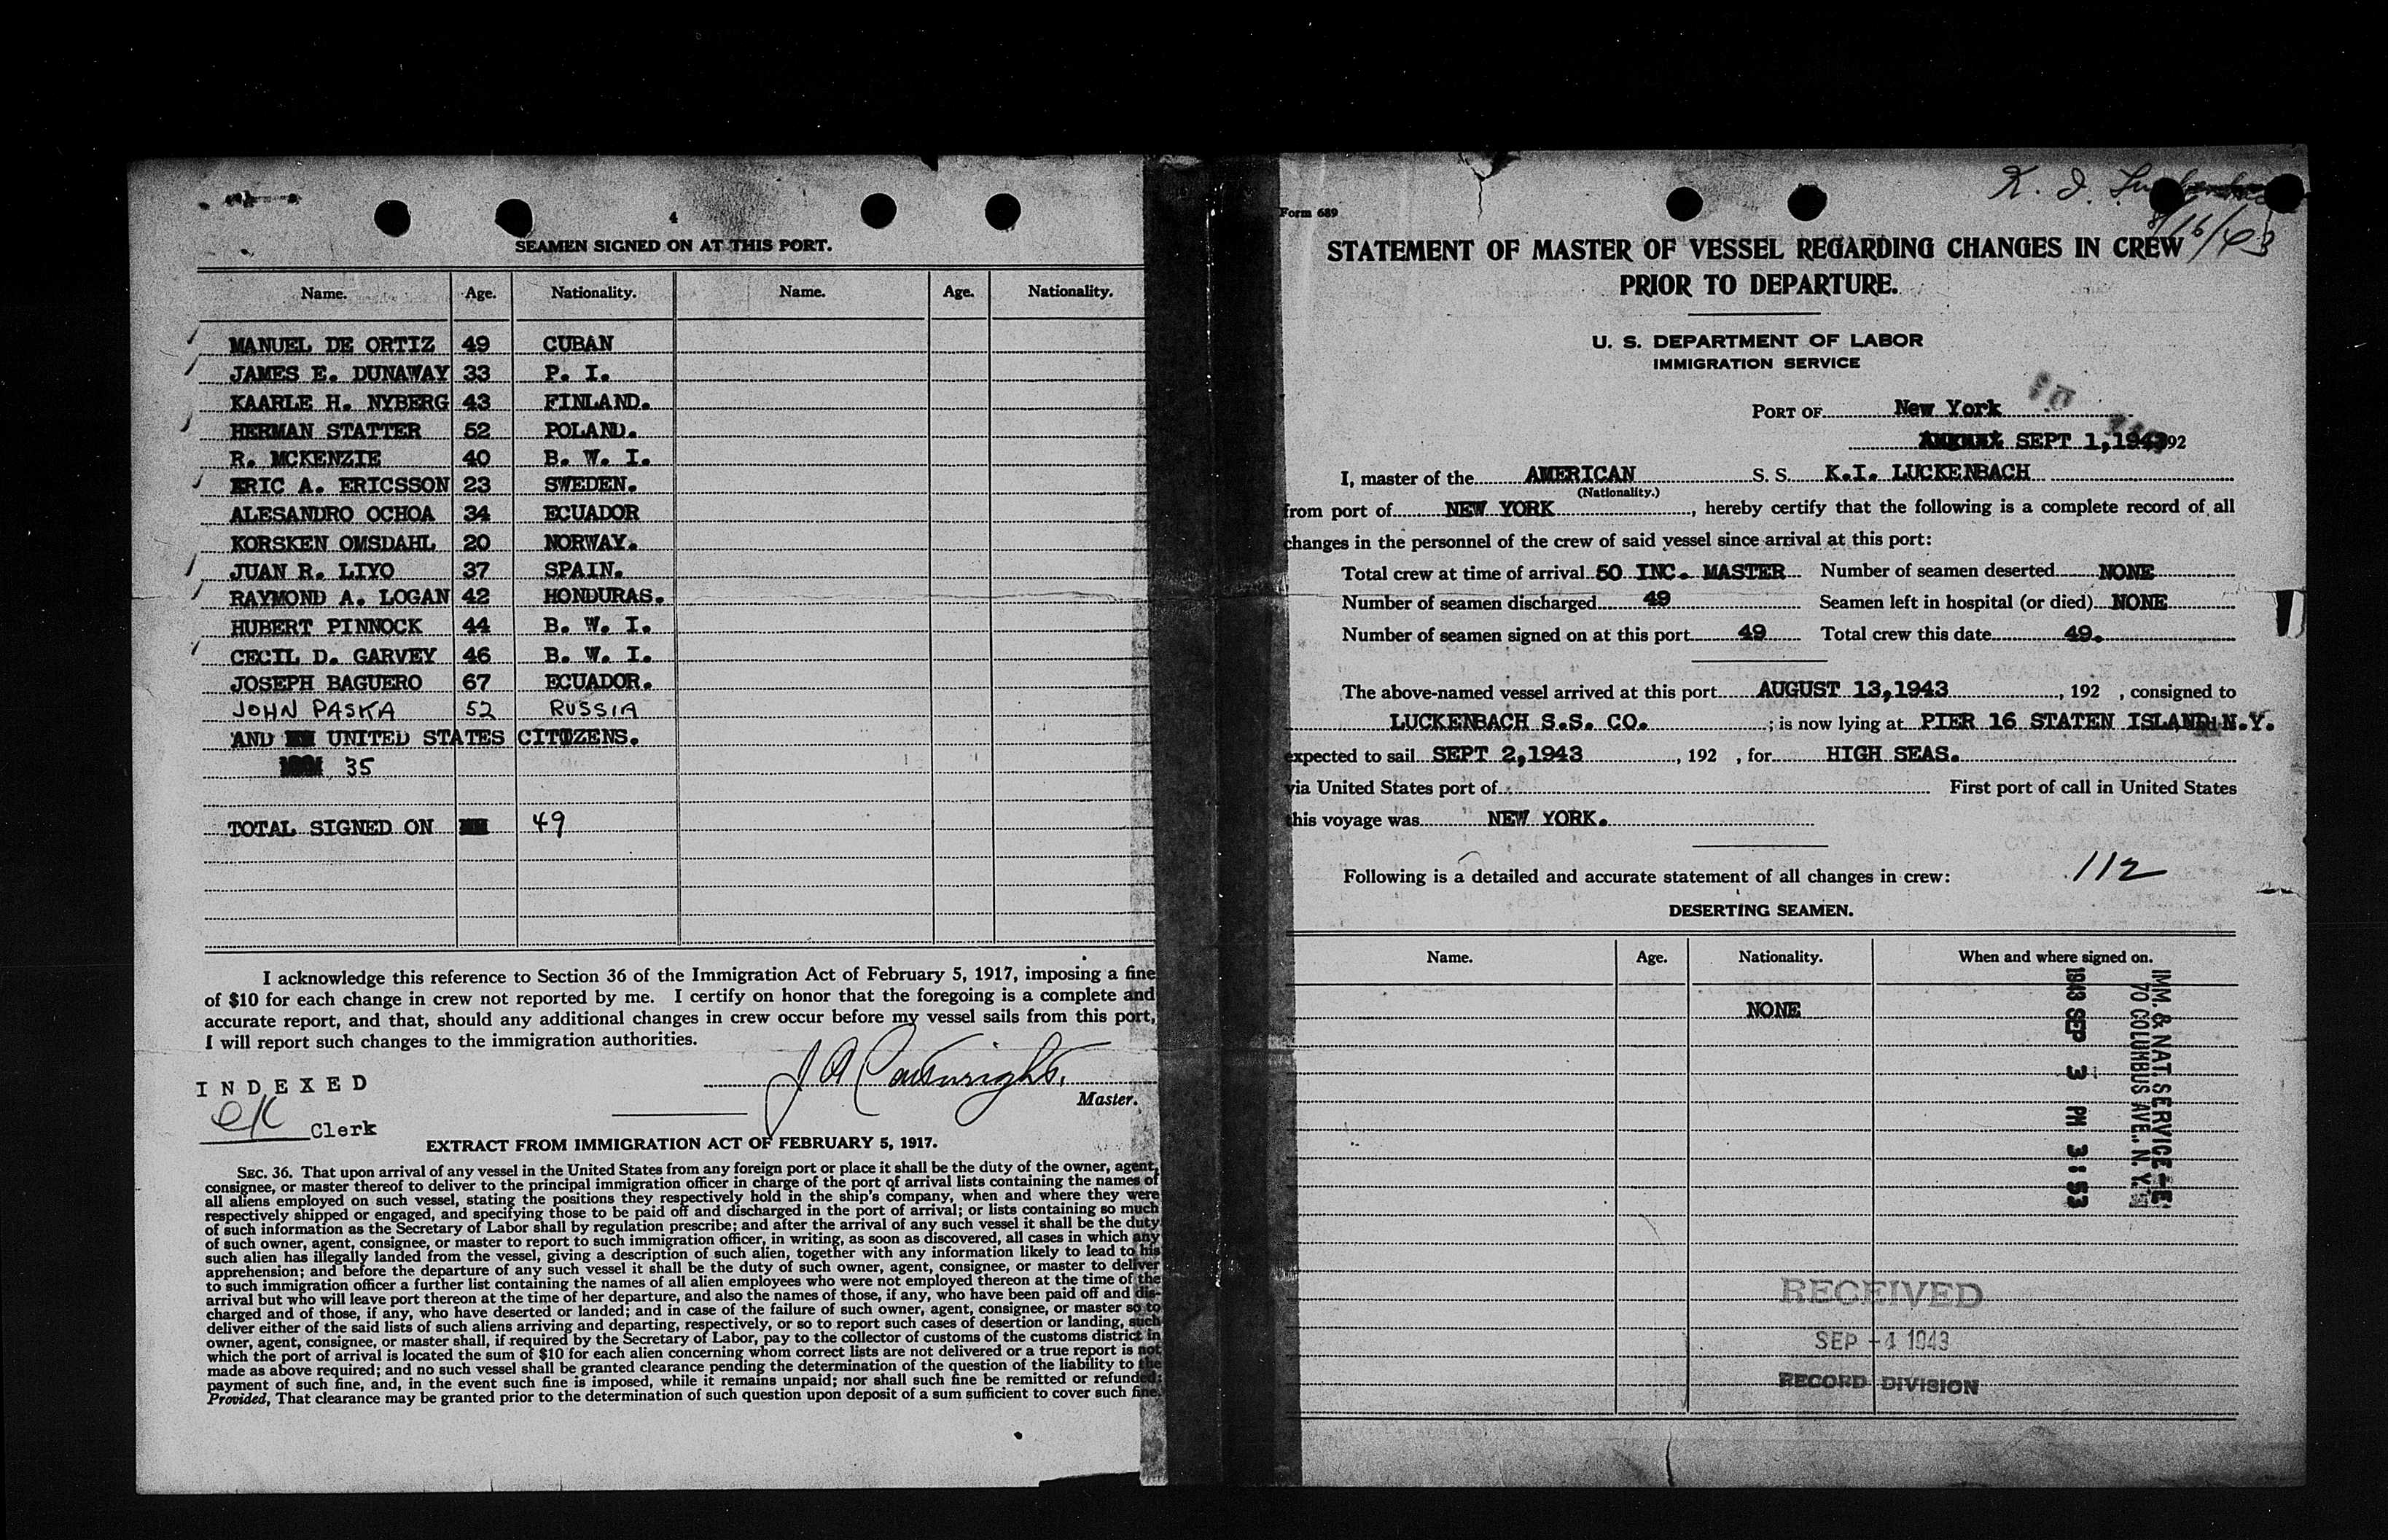 4
SEAMEN SIGNED ON AT THIS PORT.
Name. Age. Nationality. Name. Age. Nationality.
MANUEL DE ORTIZ 49 CUBAN
JAMES E. DUNAWAY 33 P. I.
KAARLE H. NYBERG 43 FINLAND.
HERMAN STATTER 52 POLAND.
R. MCKENZIE 40 B. W. I.
ERIC A. ERICSSON 23 SWEDEN.
ALESANDRO OCHOA 34 ECUADOR
KORSKEN OMSDAHL 20 NORWAY.
JUAN R. LIYO 37 SPAIN.
RAYMOND A. LOGAN 42 HONDURAS.
HUBERT PINNOCK 44 B. W. I.
CECIL D. GARVEY 46 B. W. I.
JOSEPH BAGUERO 67 ECUADOR.
JOHN PASKA 52 RUSSIA
AND UNITED STATES CITIZENS.
35
TOTAL SIGNED ON 49
I acknowledge this reference to Section 36 of the Immigration Act of February 5, 1917, imposing a fine
of $10 for each change in crew not reported by me. I certify on honor that the foregoing is a complete and
accurate report, and that, should any additional changes in crew occur before my vessel sails from this port,
I will report such changes to the immigration authorities.
J A Cartwright.
Master.
INDEXED
Clerk
EXTRACT FROM IMMIGRATION ACT OF FEBRUARY 5, 1917.
SEC. 36. That upon arrival of any vessel in the United States from any foreign port or place it shall be the duty of the owner, agent,
consignee, or master thereof to deliver to the principal immigration officer in charge of the port of arrival lists containing the names of
all aliens employed on such vessel, stating the positions they respectively hold in the ship's company, when and where they were
respectively shipped or engaged, and specifying those to be paid off and discharged in the port of arrival; or lists containing so much
of such information as the Secretary of Labor shall by regulation prescribe; and after the arrival of any such vessel it shall be the duty
of such owner, agent, consignee, or master to report to such immigration officer, in writing, as soon as discovered, all cases in which any
such alien has illegally landed from the vessel, giving a description of such alien, together with any information likely to lead to his
apprehension; and before the departure of any such vessel it shall be the duty of such owner, agent, consignee, or master to deliver
to such immigration officer a further list containing the names of all alien employees who were not employed thereon at the time of the
arrival but who will leave port thereon at the time of her departure, and also the names of those, if any, who have been paid off and dis-
charged and of those, if any, who have deserted or landed; and in case of the failure of such owner, agent, consignee, or master so to
deliver either of the said lists of such aliens arriving and departing, respectively, or so to report such cases of desertion or landing, such
owner, agent, consignee, or master shall, if required by the Secretary of Labor, pay to the collector of customs of the customs district in
which the port of arrival is located the sum of $10 for each alien concerning whom correct lists are not delivered or a true report is not
made as above required; and no such vessel shall be granted clearance pending the determination of the question of the liability to the
payment of such fine, and, in the event such fine is imposed, while it remains unpaid; nor shall such fine be remitted or refunded:
Provided, That clearance may be granted prior to the determination of such question upon deposit of a sum sufficient to cover such fine.
Form 689
8/16/43
STATEMENT OF MASTER OF VESSEL REGARDING CHANGES IN CREW
PRIOR TO DEPARTURE.
U. S. DEPARTMENT OF LABOR
IMMIGRATION SERVICE
PORT OF New York
SEPT 1,1943 92
I, master of the AMERICAN S. S. K.I. LUCKENBACH
(Nationality.)
from port of NEW YORK, hereby certify that the following is a complete record of all
changes in the personnel of the crew of said vessel since arrival at this port:
Total crew at time of arrival 50 INC. MASTER Number of seamen deserted NONE
Number of seamen discharged 49 Seamen left in hospital (or died) NONE
Number of seamen signed on at this port 49 Total crew this date 49.
The above-named vessel arrived at this port AUGUST 13,1943, 192 , consigned to
LUCKENBACH S.S. CO. ; is now lying at PIER 16 STATEN ISLAND N.Y.
expected to sail SEPT 2,1943, 192 , for HIGH SEAS.
via United States port of First port of call in United States
this voyage was NEW YORK.
Following is a detailed and accurate statement of all changes in crew: 112
DESERTING SEAMEN.
Name. Age. Nationality. When and where signed on.
NONE
IMM. & NAT. SERVICE - E
70 COLUMBUS AVE., N. Y.
1943 SEP 3 PM 3:53
RECEIVED
SEP -4 1943
RECORD DIVISION